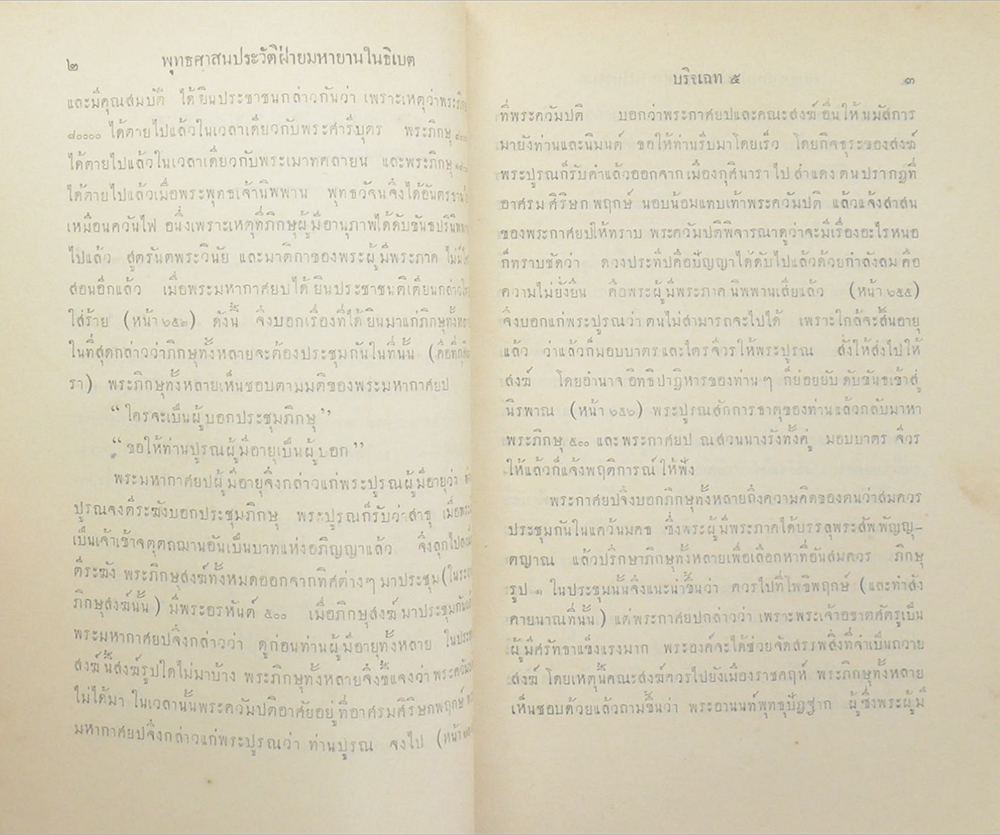 ๒ พุทธศาสนประวัติฝ่ายมหายานในธิเบต
และมีคุณสมบัติ ได้ยินประชาชนกล่าวกันว่า เพราะเหตุว่าพระภิกษุ
๘๐๐๐๐ ได้ตายไปแล้วในเวลาเดียวกับพระศารีบุตร พระภิกษุ
ได้ตายไปแล้วในเวลาเดียวกับพระเมาทคลายน และพระภิกษุ
ได้ตายไปแล้วเมื่อพระพุทธเจ้านิพพาน พุทธวัจนจึงได้อันตรธาน
เหมือนควันไฟ อนึ่งเพราะเหตุที่ภิกษุผู้มีอานุภาพได้ดับขันธปรินิพพาน
ไปแล้ว สูตรันตพระวินัย และมาติกาของพระผู้มีพระภาค ไม่มี
สอนอีกแล้ว เมื่อพระมหากาศยปได้ยินประชาชนติเตียนกล่าว
ใส่ร้าย (หน้า ๖๕๓) ดังนี้ จึงบอกเรื่องที่ได้ยินมาแก่ภิกษุทั้งหลาย
ในที่สุดกล่าวว่าภิกษุทั้งหลายจะต้องประชุมกันในที่นั้น (คือที่กุสินา
รา) พระภิกษุทั้งหลายเห็นชอบตามมติของพระมหากาศยป
“ใครจะเป็นผู้บอกประชุมภิกษุ”
“ขอให้ท่านปูรณผู้มีอายุเป็นผู้บอก”
พระมหากาศยปผู้มีอายุจึงกล่าวแก่พระปูรณผู้มีอายุว่า
ปูรณจงตีระฆังบอกประชุมภิกษุ พระปูรณก็รับว่าสาธุ เมื่อ
เป็นเจ้าเข้าจตุตถฌานอันเป็นบาทแห่งอภิญญาแล้ว จึงลุกไป
ตีระฆัง พระภิกษุสงฆ์ทั้งหมดออกจากทิศต่างๆ มาประชุม (ใน
ภิกษุสงฆ์นั้น) มีพระอรหันต์ ๕๐๐ เมื่อภิกษุสงฆ์มาประชุมกัน
พระมหากาศยปจึงกล่าวว่า ดูก่อนท่านผู้มีอายุทั้งหลาย ในประชุม
สงฆ์นี้สงฆ์รูปใดไม่มาบ้าง พระภิกษุทั้งหลายจึงชี้แจงว่า พระควัมปติ
ไม่ได้มา ในเวลานั้นพระควัมปติอาศัยอยู่ที่อาศรมศิริษกพฤกษ์
มหากาศยปจึงกล่าวแก่พระปูรณว่า ท่านปูรณ จงไป (หน้า
บริจเฉท ๕ ๓
ที่พระควัมปติ บอกว่าพระกาศยปและคณะสงฆ์อื่นให้นมัสการ
มายังท่านและนิมนต์ ขอให้ท่านรีบมาโดยเร็ว โดยกิจธุระของสงฆ์
พระปูรณก็รับคำแล้วออกจากเมืองกุศินาราไปสำแดงตนปรากฏที่
อาศรมศิริษกพฤกษ์ นอบน้อมแทบเท้าพระควัมปติ แล้วแจ้งสาสน
ของพระกาศยปให้ทราบ พระควัมปติพิจารณาดูว่าจะมีเรื่องอะไรหนอ
ก็ทราบชัดว่า ดวงประทีปคือปัญญาได้ดับไปแล้วด้วยกำลังลมคือ
ความไม่ยั่งยืน คือพระผู้มีพระภาคนิพพานเสียแล้ว (หน้า ๖๕๕)
จึงบอกแก่พระปูรณว่าตนไม่สามารถจะไปได้ เพราะใกล้จะสิ้นอายุ
แล้ว ว่าแล้วก็มอบบาตรและไตรจีวรให้พระปูรณ สั่งให้ส่งไปให้
สงฆ์ โดยอำนาจอิทธิปาฏิหารของท่านๆ ก็ย่อยยับดับขันธเข้าสู่
นิรพาณ (หน้า ๖๕๖) พระปูรณสักการธาตุของท่านแล้วกลับมาหา
พระภิกษุ ๕๐๐ และพระกาศยป ณสวนนางรังทั้งคู่ มอบบาตร จีวร
ให้แล้วก็แจ้งพฤติการณ์ให้ฟัง
พระกาศยปจึงบอกภิกษุทั้งหลายถึงความคิดของตนว่าสมควร
ประชุมกันในแคว้นมคธ ซึ่งพระผู้มีพระภาคได้บรรลุพระสัพพัญญุ-
ตญาณ แล้วปรึกษาภิกษุทั้งหลายเพื่อเลือกหาที่อันสมควร ภิกษุ
รูป ๑ ในประชุมนั้นจึงแนะนำขึ้นว่า ควรไปที่โพธิพฤกษ์ (และทำสัง
คายนาณที่นั้น) แต่พระกาศยปกล่าวว่า เพราะพระเจ้าอชาตศัตรูเป็น
ผู้มีศรัทธาแข็งแรงมาก พระองค์จะได้ช่วยจัดสรรพสิ่งที่จำเป็นถวาย
สงฆ์ โดยเหตุนี้คณะสงฆ์ควรไปยังเมืองราชคฤห์ พระภิกษุทั้งหลาย
เห็นชอบด้วยแล้วถามขึ้นว่า พระอานนท์พุทธุปัฏฐาก ผู้ซึ่งพระผู้มี